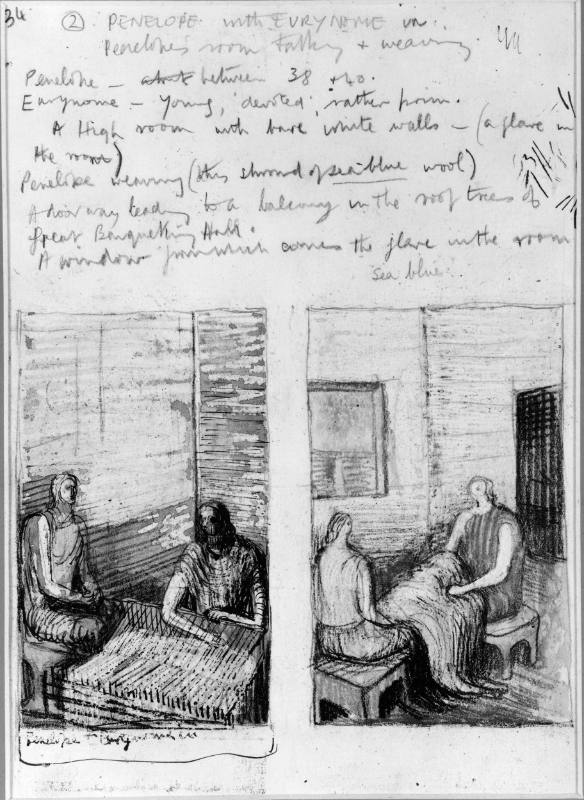 34
② PENELOPE with EURYNOME in
Penelope's room talking + weaving
Penelope – about between 38 + 40.
Eurynome – young, 'devoted', rather prim.
A High room with bare white walls – (a glare in
the room)
Penelope weaving (this shroud of sea-blue wool)
A doorway leading to a balcony in the roof trees of
great Banquetting Hall.
A window from which comes the glare in the room
sea blue
Penelope +